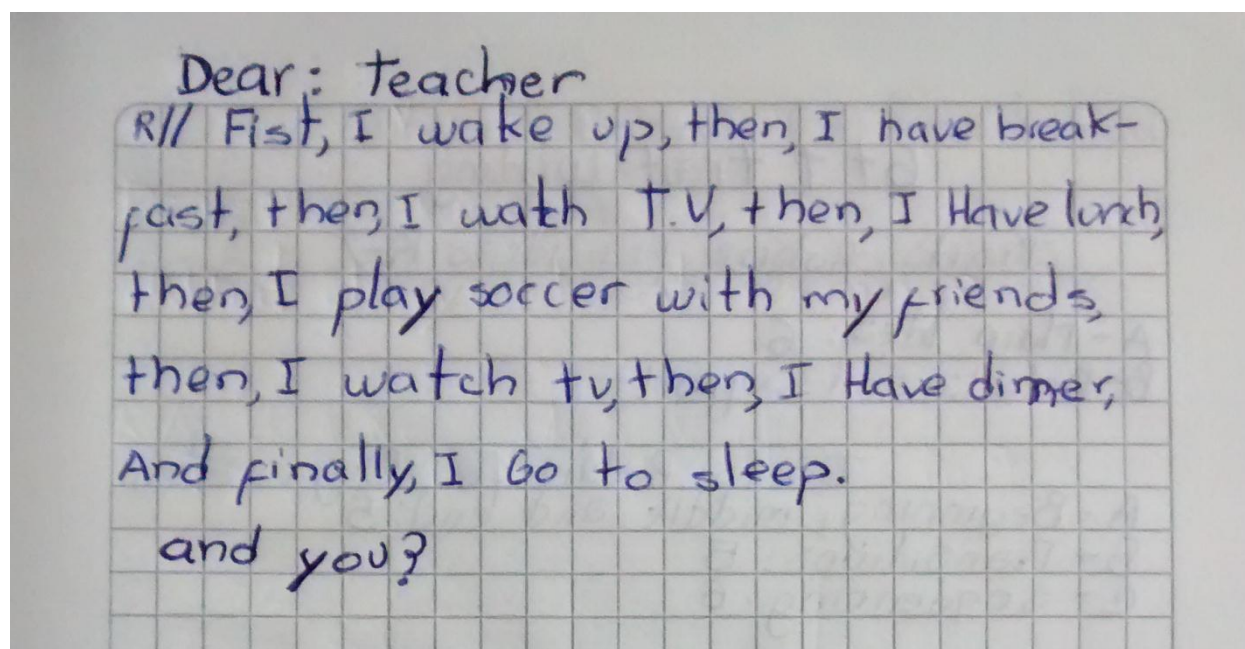 Dear: teacher
R// Fist, I wake up, then, I have break-
fast, then, I watch T.V, then, I Have lunch,
then, I play soccer with my friends,
then, I watch tv, then, I Have dinner,
And finally, I Go to sleep.
and you?